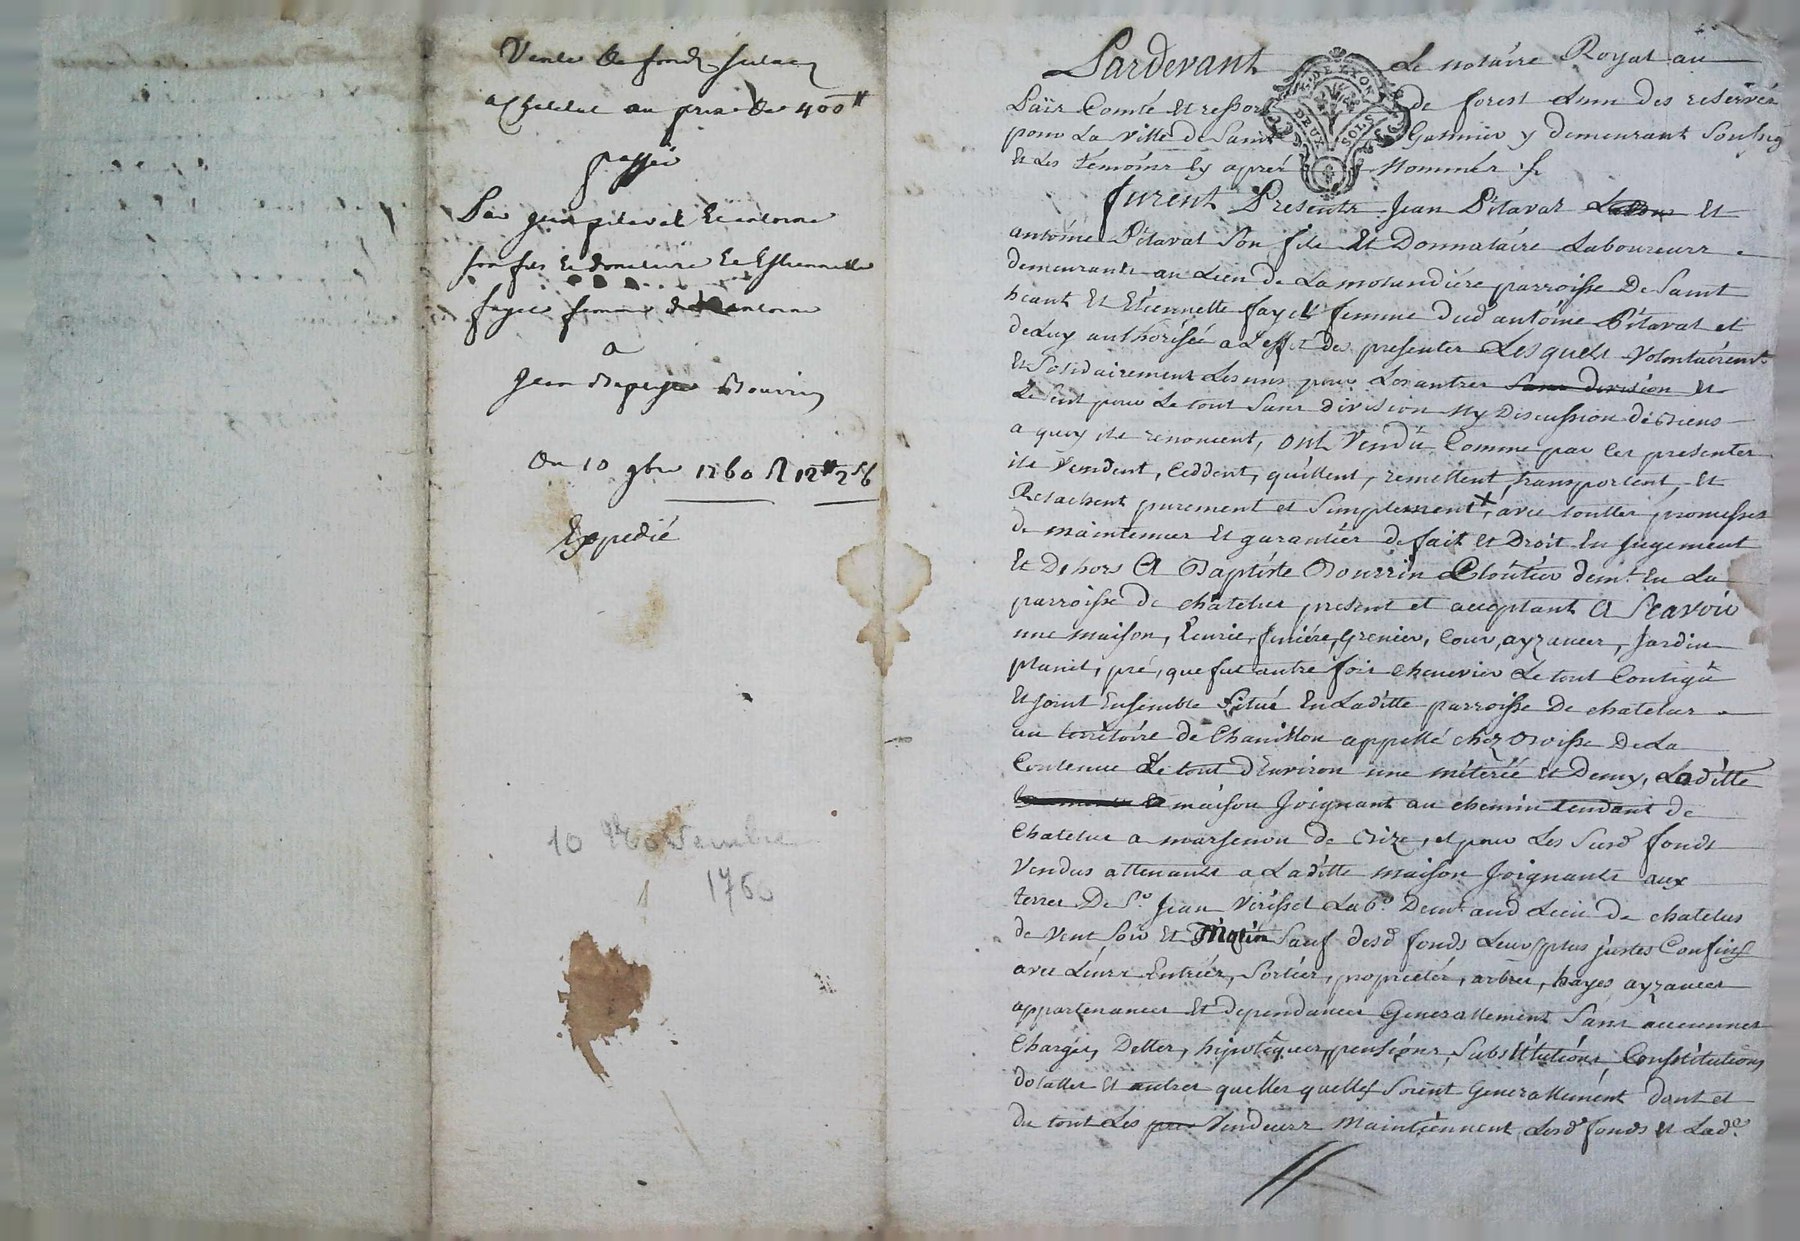 Vente de fonds scituez
a chatelus au prix de 400#
passée
Par jean pitaval et antoine
son fils et donataire et Estiennette
fayet femme dud antoine
a
jean Baptiste Bourrin
Du 10 9bre 1760
Expedié
10 Novembre
1760
Pardevant Le notaire Royal au
Païs Comté et ressort de forest L'un des reservés
pour La ville de Saint Galmier y demeurant Soussigné
Et Les temoins Cy aprés Nommés
furent Presents Jean Pitaval Et
antoine Pitaval Son fils Et Donnataire Laboureurs
demeurants au Lieu de Lamolundiére parroisse De Saint
heant Et Etiennette fayet femme dud antoine Pitaval et
de Luy authorisée a L'effet des presentes Lesquels volontairemt
Et Solidairement Les uns pour Les autres Sans division et
Le Seul pour Le tout Sans division Ny Discussion de Biens
a quoy ils renoncent, ont Vendu Comme par Ces presentes
ils Vendent, Ceddent, quittent, remettent, transportent, Et
Relachent purement et Simplement, avec touttes promesses
de maintenir Et garantir de fait Et Droit En jugement
Et Dehors A Baptiste Bourrin Cloutier demt En La
parroisse De chatelus present et acceptant A Scavoir
une maison, Ecurie, feniére, Grenier, Cour, ayzances, Jardin
planit, pré, que fut autre fois chenevier Le tout Contigu
Et Joint Ensemble Situé En Laditte parroisse De chatelus
au territoire de Chanillon appellé chez Boisse De La
Contenue Le tout D'Environ une méterée et Demy, Laditte
maison Joignant au chemin tendant de
Chatelus a marsenou de Bize, et pour Les Susd fonds
Vendus attenants a Laditte maison Joignants aux
terres De Sr Jean Verisset Labr Demt aud Lieu de chatelus
de Vent Soir et Matin Sauf desd fonds Leurs plus justes Confins
avec Leurs Entrées, Sorties, proprietés, arbres, hayes, ayzances
appartenances Et dependances Generallement Sans aucunnes
Charges, Dettes, hipotèques, pensions, Substitutions, Constitutions
dotalles Et autres quelles quelles Soient Generallement dont et
du tout Les Vendeurs Maintiennent Lesd fonds et Lade